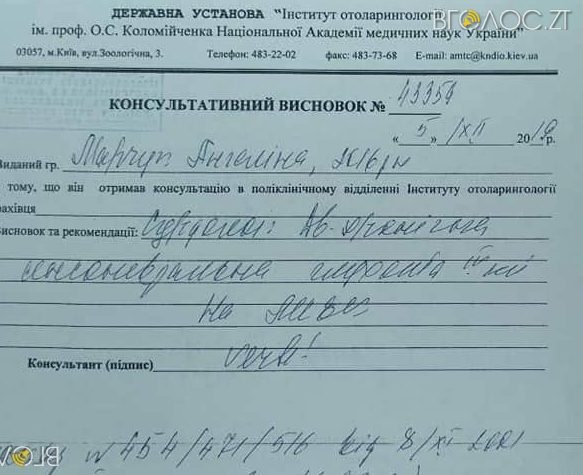 ВГОЛОС.ZT
ДЕРЖАВНА УСТАНОВА “Інститут отоларингології
ім. проф. О.С. Коломійченка Національної Академії медичних наук України”
03057, м.Київ, вул.Зоологічна, 3. Телефон: 483-22-02 факс: 483-73-68 E-mail: amtc@kndio.kiev.ua
КОНСУЛЬТАТИВНИЙ ВИСНОВОК № 43354
« 5 » /XII 2019р.
Виданий гр. Марчук Ангеліна,
тому, що він отримав консультацію в поліклінічному відділенні Інституту отоларингології
фахівця
Висновок та рекомендації: Сурдолог: Хронічна
сенсоневральна
На
Консультант (підпис)
№ 454/471/516 від 8/XII 2001